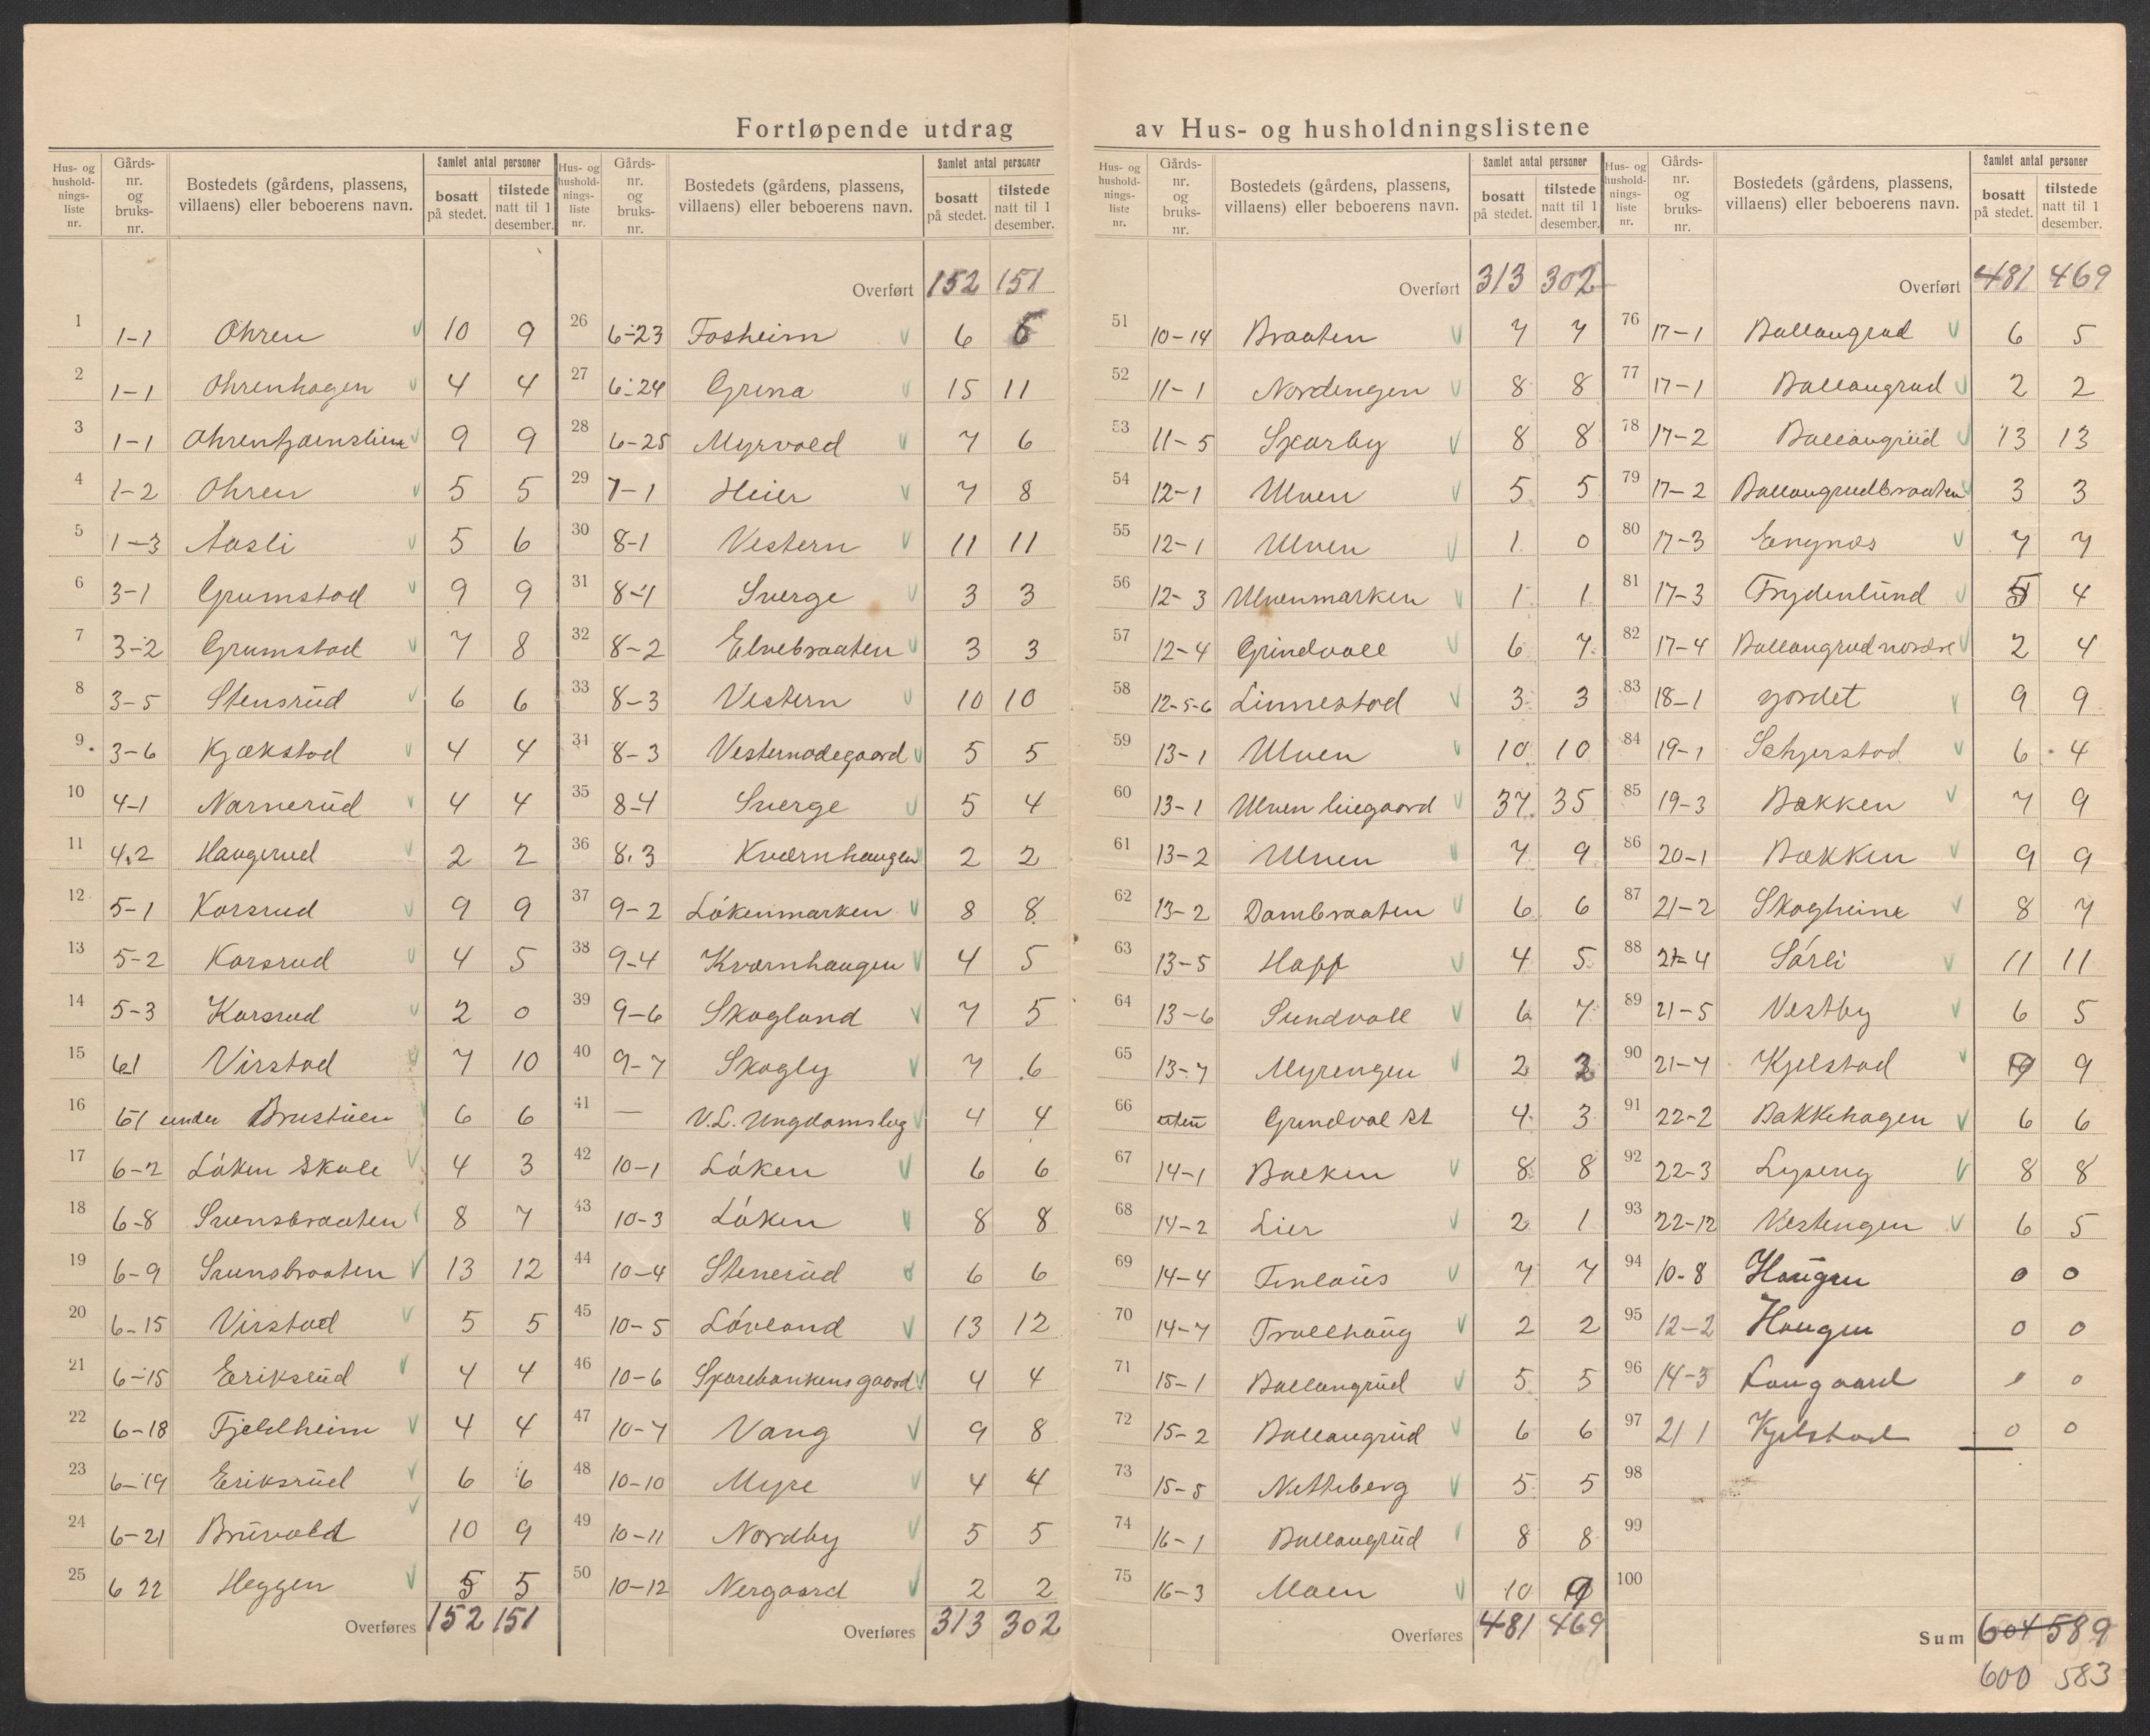 Fortløpende utdrag av Hus- og husholdningslistene
Hus- og hushold-nings-liste nr. Gårds-nr. og bruks-nr. Bostedets (gårdens, plassens, villaens) eller beboerens navn. Samlet antal personer bosatt på stedet. tilstede natt til 1 desember.
1 1-1 Ohren v 10 9
2 1-1 Ohrenhagen v 4 4
3 1-1 v 9 9
4 1-2 Ohren v 5 5
5 1-3 Aasli v 5 6
6 3-1 Grumstad v 9 9
7 3-2 Grumstad v 7 8
8 3-5 Stensrud v 6 6
9 3-6 Kjækstad v 4 4
10 4-1 Narverud v 4 4
11 4.2 Haugerud v 2 2
12 5-1 Korsrud v 9 9
13 5-2 Korsrud v 4 5
14 5-3 Korsrud v 2 0
15 61 Virstad v 7 10
16 61 under Brustuen 6 6
17 6-2 Löken Skole v 4 3
18 6-8 Svensbraaten v 8 7
19 6-9 Svensbraaten v 13 12
20 6-15 Virstad v 5 5
21 6-15 Eriksrud v 4 4
22 6-18 Fjeldheim v 4 4
23 6-19 Eriksrud v 6 6
24 6-21 Bruvold v 10 9
25 6 22 Heggen v 5 5
Overføres 152 151
Hus- og hushold-nings-liste nr. Gårds-nr. og bruks-nr. Bostedets (gårdens, plassens, villaens) eller beboerens navn. Samlet antal personer bosatt på stedet. tilstede natt til 1 desember.
Overført 152 151
26 6-23 Fosheim v 6 6
27 6-24 Grina v 15 11
28 6-25 Myrvold v 7 6
29 7-1 Heier v 7 8
30 8-1 Vestern v 11 11
31 8-1 Sverge v 3 3
32 8-2 Elvebraaten v 3 3
33 8-3 Vestern v 10 10
34 8-3 Vesternødegaard v 5 5
35 8-4 Sverge v 5 4
36 8.3 Kværnhaugen v 2 2
37 9-2 Lökenmarken v 8 8
38 9-4 Kværnhaugen v 4 5
39 9-6 Skogland v 7 5
40 9-7 Skogly v 7 6
41 — V.L. Ungdomslag v 4 4
42 10-1 Löken v 6 6
43 10-3 Löken v 8 8
44 10-4 Stenerud v 6 6
45 10-5 Lövland v 13 12
46 10-6 Sparebankensgaard v 4 4
47 10-7 Vang v 9 8
48 10-10 Myre v 4 4
49 10-11 Nordby v 5 5
50 10-12 Nergaard v 2 2
Overføres 313 302
Hus- og hushold-nings-liste nr. Gårds-nr. og bruks-nr. Bostedets (gårdens, plassens, villaens) eller beboerens navn. Samlet antal personer bosatt på stedet. tilstede natt til 1 desember.
Overført 313 302
51 10-14 Braaten v 7 7
52 11-1 Nordengen v 8 8
53 11-5 Sparby v 8 8
54 12-1 Ulven v 5 5
55 12-1 Ulven v 1 0
56 12-3 Ulvenmarken v 1 1
57 12-4 Grindvoll v 6 7
58 12-5-6 Linnestad v 3 3
59 13-1 Ulven v 10 10
60 13-1 Ulven leiegaard v 37 35
61 13-2 Ulven v 7 9
62 13-2 Dambraaten v 6 6
63 13-5 Happ v 4 5
64 13-6 Sundvoll v 6 7
65 13-7 Myrengen v 2 2
66 uten Grindvol St 4 3
67 14-1 Bakken v 8 8
68 14-2 Lier v 2 1
69 14-4 v 7 7
70 14-7 Trollhaug v 2 2
71 15-1 Ballangrud v 5 5
72 15-2 Ballangrud v 6 6
73 15-5 Netteberg v 5 5
74 16-1 Ballangrud v 8 8
75 16-3 Moen v 10 9
Overføres 481 469
Hus- og hushold-nings-liste nr. Gårds-nr. og bruks-nr. Bostedets (gårdens, plassens, villaens) eller beboerens navn. Samlet antal personer bosatt på stedet. tilstede natt til 1 desember.
Overført 481 469
76 17-1 Ballangrud v 6 5
77 17-1 Ballangrud v 2 2
78 17-2 Ballangrud v 13 13
79 17-2 Ballangrudbraaten v 3 3
80 17-3 Engnes v 7 7
81 17-3 Frydenlund v 5 4
82 17-4 Ballangrud nordre v 2 4
83 18-1 Jordet v 9 9
84 19-1 v 6 4
85 19-3 Bakken v 7 9
86 20-1 Bakken v 9 9
87 21-2 Skogheim v 8 7
88 21-4 Sörli v 11 11
89 21-5 Vestby v 6 5
90 21-7 Kjelstad v 9 9
91 22-2 Bakkehagen v 6 6
92 22-3 Lyseng v 8 8
93 22-12 Vestengen v 6 5
94 10-8 Haugen 0 0
95 12-2 Haugen 0 0
96 14-3 Laugaard 0
97 21 1 Kjelstad 0 0
98
99
100
Sum 604 589
600 583